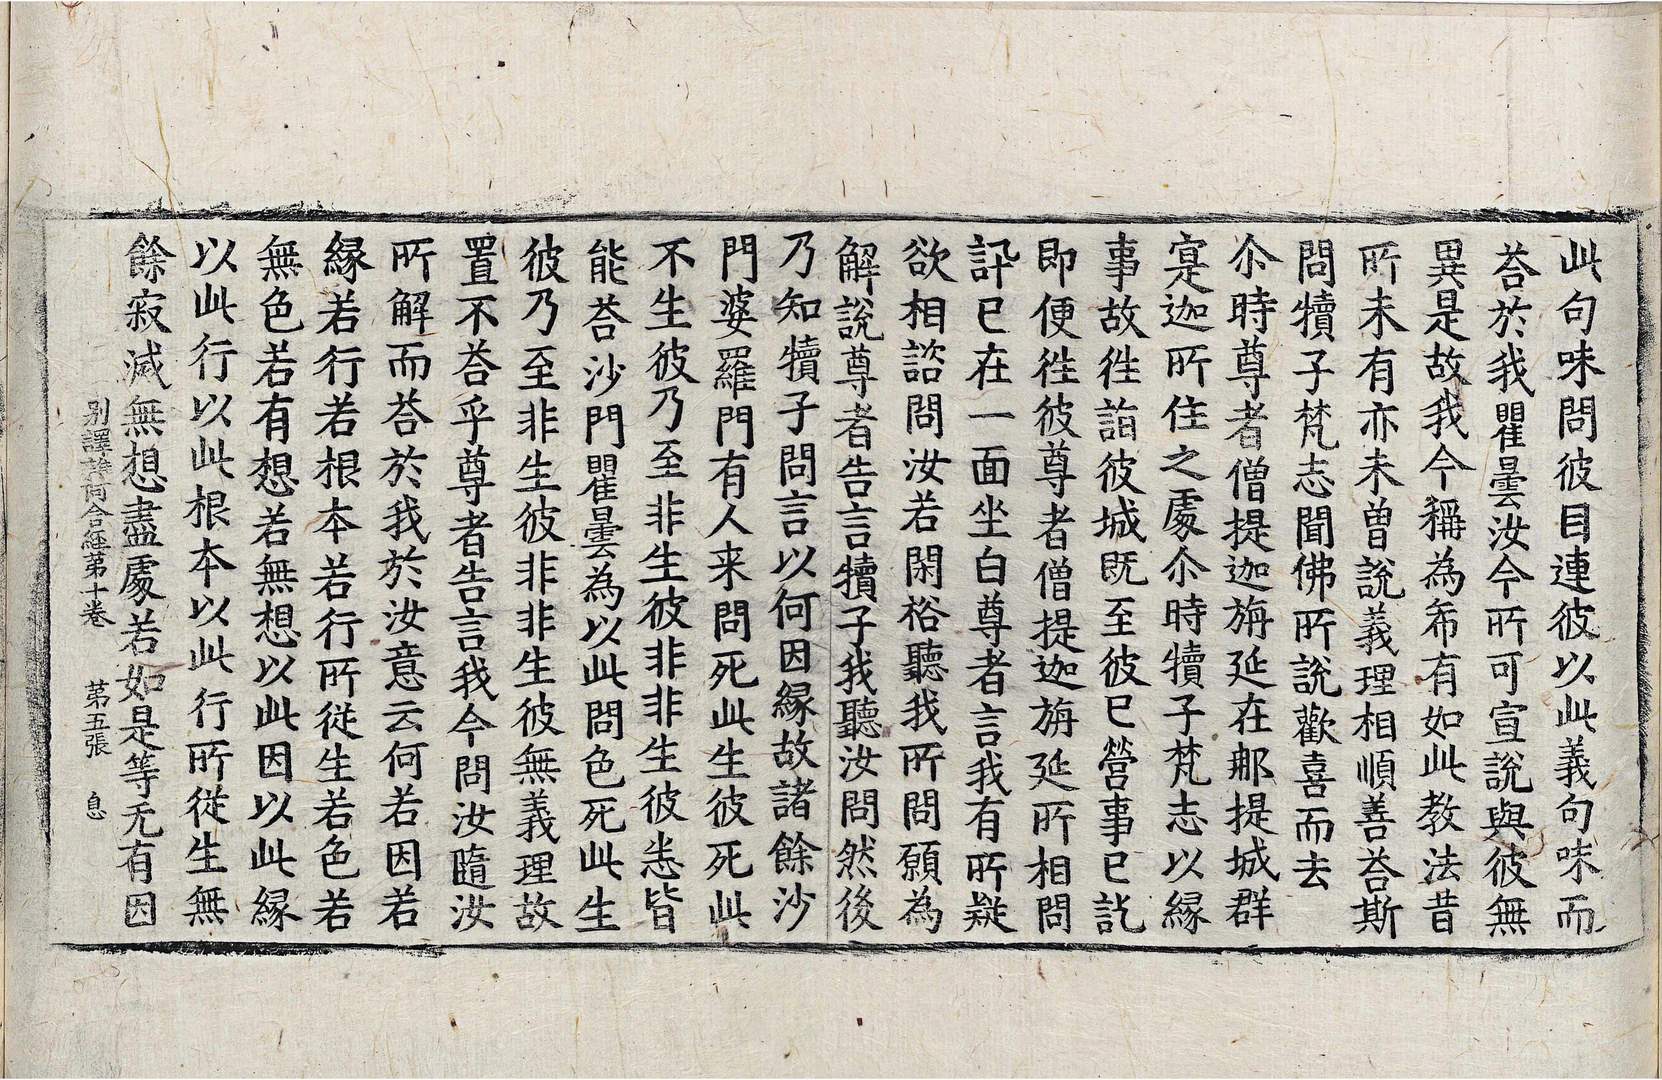 此句味問彼目連彼以此義句味而
荅於我瞿曇汝今所可宣說與彼無
異是故我今稱為希有如此教法昔
所未有亦未曽說義理相順善荅斯
問犢子梵志聞佛所說歡喜而去
尒時尊者僧提迦旃延在那提城群
寔迦所住之處尒時犢子梵志以縁
事故徃詣彼城既至彼已營事已訖
即便徃彼尊者僧提迦旃延所相問
訊已在一面坐白尊者言我有所疑
欲相諮問汝若閑裕聽我所問願為
解說尊者告言犢子我聽汝問然後
乃知犢子問言以何因縁故諸餘沙
門婆羅門有人来問死此生彼死此
不生彼乃至非生彼非非生彼悉皆
能荅沙門瞿曇為以此問色死此生
彼乃至非生彼非非生彼無義理故
置不荅乎尊者告言我今問汝隨汝
所解而荅於我於汝意云何若因若
縁若行若根本若行所從生若色若
無色若有想若無想以此因以此縁
以此行以此根本以此行所從生無
餘寂滅無想盡處若如是等无有因
別譯雜阿含經第十卷 第五張 息